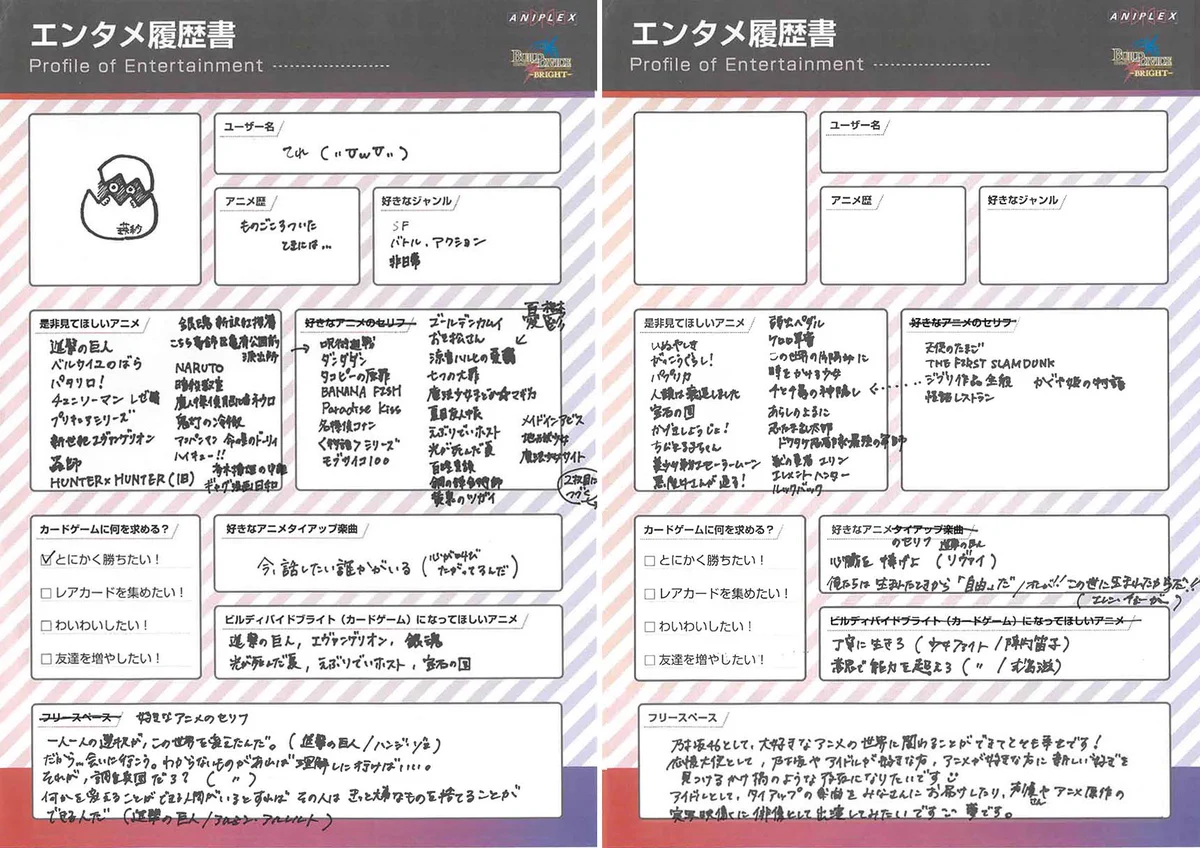 エンタメ履歴書
Profile of Entertainment
ANIPLEX
BUILD DIVIDE
-BRIGHT-
ユーザー名
てれ
アニメ歴
ものごころついた
ときには…
好きなジャンル
SF
バトル・アクション
非日常
是非見てほしいアニメ
進撃の巨人
ベルサイユのばら
パタリロ！
チェンソーマン レゼ篇
プリキュアシリーズ
新世紀エヴァンゲリオン
蟲師
HUNTER×HUNTER(旧)
銀魂 新訳紅桜篇
こちら葛飾区亀有公園前
派出所
NARUTO
暗殺教室
魔人探偵脳噛ネウロ
鬼灯の冷徹
アンパンマン 命の星のドーリィ
ハイキュー!!
ギャグ漫画日和
好きなアニメのセリフ
呪術廻戦
ダンダダン
タコピーの原罪
BANANA FISH
Paradise Kiss
名探偵コナン
<物語>シリーズ
モブサイコ100
ゴールデンカムイ
おそ松さん
涼宮ハルヒの憂鬱
憂鬱
七つの大罪
魔法少女まどか☆マギカ
夏目友人帳
えぶりでいホスト
光が死んだ夏
百姓貴族
鋼の錬金術師
黄泉のツガイ
メイドインアビス
地獄少女
魔法少女サイト
2枚目に
つづく
カードゲームに何を求める？
☑とにかく勝ちたい！
□レアカードを集めたい！
□わいわいしたい！
□友達を増やしたい！
好きなアニメタイアップ楽曲
今、話したい誰かがいる (心が叫び
たがってるんだ)
ビルディバイドブライト（カードゲーム）になってほしいアニメ
進撃の巨人, エヴァンゲリオン, 銀魂
光が死んだ夏, えぶりでいホスト, 宝石の国
フリースペース 好きなアニメのセリフ
一人一人の選択が、この世界を変えたんだ。(進撃の巨人/ハンジ・ゾエ)
だから…会いに行こう。わからないものがあれば理解しに行けばいい。
それが、調査兵団だろ？ ( 〃 )
何かを変えることができる人間がいるとすれば その人は きっと大事なものを捨てることが
できる人だ (進撃の巨人/アルミン・アルレルト)
エンタメ履歴書
Profile of Entertainment
ANIPLEX
BUILD DIVIDE
-BRIGHT-
ユーザー名
アニメ歴
好きなジャンル
是非見てほしいアニメ
いぬやしき
がっこうぐらし！
パプリカ
人類は衰退しました
宝石の国
かげきしょうじょ！
ちびまる子ちゃん
美少女戦士セーラームーン
悪魔くんが
弱虫ペダル
ケロロ軍曹
この世界の片隅に
時をかける少女
千と千尋の神隠し
あらしのよるに
忍たま乱太郎
ドクタケ忍者隊最強の軍師
エレメントハンター
ルックバック
好きなアニメのセリフ
天使のたまご
THE FIRST SLAMDUNK
ジブリ作品全般 かぐや姫の物語
怪談レストラン
カードゲームに何を求める？
□とにかく勝ちたい！
□レアカードを集めたい！
□わいわいしたい！
□友達を増やしたい！
好きなアニメタイアップ楽曲
のセリフ 進撃の巨人
心臓を捧げよ (リヴァイ)
俺たちは 生まれたときから「自由」だ/オレが!!この世に生まれたからだ!!
(エレン・イェーガー)
ビルディバイドブライト（カードゲーム）になってほしいアニメ
丁寧に生きろ
フリースペース
乃坂46として、大好きなアニメの世界に関わることができてとても幸せです！
応援大使として、乃坂やアイドルが好きな方、アニメが好きな方に新しい好きを
見つけるかけ橋のような存在になりたいです
アイドルとして、タイアップの楽曲をみなさんにお届けしたり、声優やアニメ原作の
さん
実写映像に俳優として出演してみたいです 夢です。